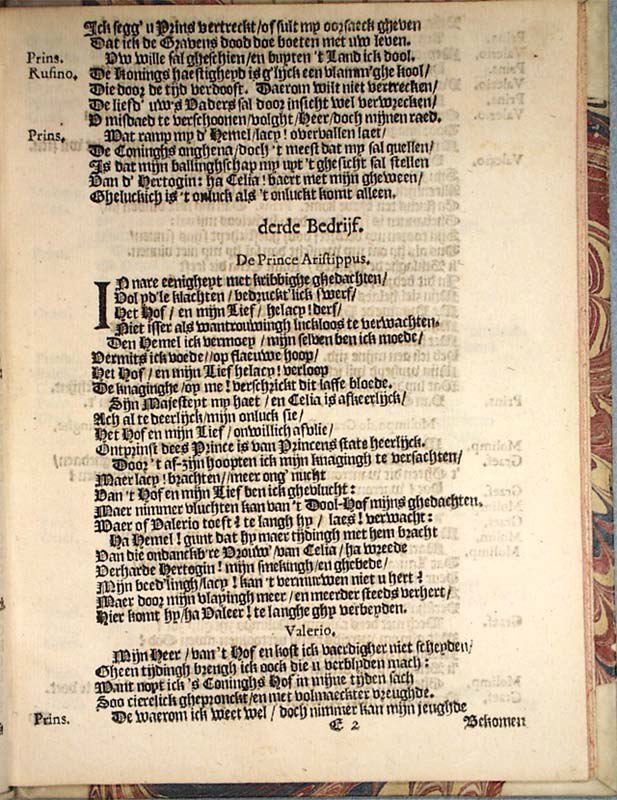 Ick segg' u Prins vertreckt/of sult my oorsaeck gheven
Dat ick de Gravens dood doe boeten met uw leven.
Prins. Uw wille sal gheschien/en buyten 't Land ick dool.
Rufino. De Konings haestigheyd is g'lijck een vlamm'ghe kool/
Die door de tijd verdooft. Daerom wilt niet vertrecken/
De liefd' uw's Vaders sal door insicht wel verwecken/
U misdaed te verschoonen/volght/Heer/doch mijnen raed.
Prins. Wat ramp my d' Hemel/lacy! overvallen laet/
De Coninghs onghena/doch 't meest dat my sal quellen/
Is dat mijn ballinghschap my uyt 't ghesicht sal stellen
Van d' Hertogin: ha Celia! baert met mijn gheween/
Gheluckich is 't onluck als 't onluckt komt alleen.
derde Bedrijf.
De Prince Aristippus.
IN nare eenigheyt met kribbighe ghedachten/
Vol yd'le klachten/bedruckt'lick swerf/
Het Hof/en mijn Lief/helacy! derf/
Niet isser als wantrouwingh luckloos te verwachten.
Den Hemel ick vermoey/mijn selven ben ick moede/
Vermits ick voede//op flaeuwe hoop/
Het Hof/en mijn Lief helacy! verloop
De knaginghe/op me! verschrickt dit laffe bloede.
Sijn Majesteyt my haet/en Celia is afkeerlijck/
Ach al te deerlijck/mijn onluck sie/
Het Hof en mijn Lief/onwillich afvlie/
Ontprinst dees Prince is van Princens state heerlijck.
Door 't af-zijn hoopten ick mijn knagingh te versachten/
Maer lacy! brachten//meer ong' nucht
Van 't Hof en mijn Lief ben ick ghevlucht:
Maer nimmer vluchten kan van 't Dool-Hof mijns ghedachten.
Waer of Valerio toeft? te langh hy/laes! verwacht:
Ha Hemel! gunt dat hy maer tijdingh met hem bracht
Van die ondanckb're Vrouw/van Celia/ha wreede
Verharde Hertogin! mijn smekingh/en ghebede/
Mijn beed'lingh/lacy! kan 't vermurwen niet u hert?
Maer door mijn vlayingh meer/en meerder steeds verhert/
Hier komt hy/ha Valeer! te langhe ghy verbeyden.
Valerio.
Mijn Heer/van't Hof en kost ick vaerdigher niet scheyden/
Gheen tijdingh breugh ick oock die u verblyden mach:
Want noyt ick's Coninghs Hof in mijne tyden sach
Soo cierelick ghepronckt/en met volmaeckter vreughde.
Prins. De waerom ick weet wel/doch nimmer kan mijn jeughde
E 2 Bekomen